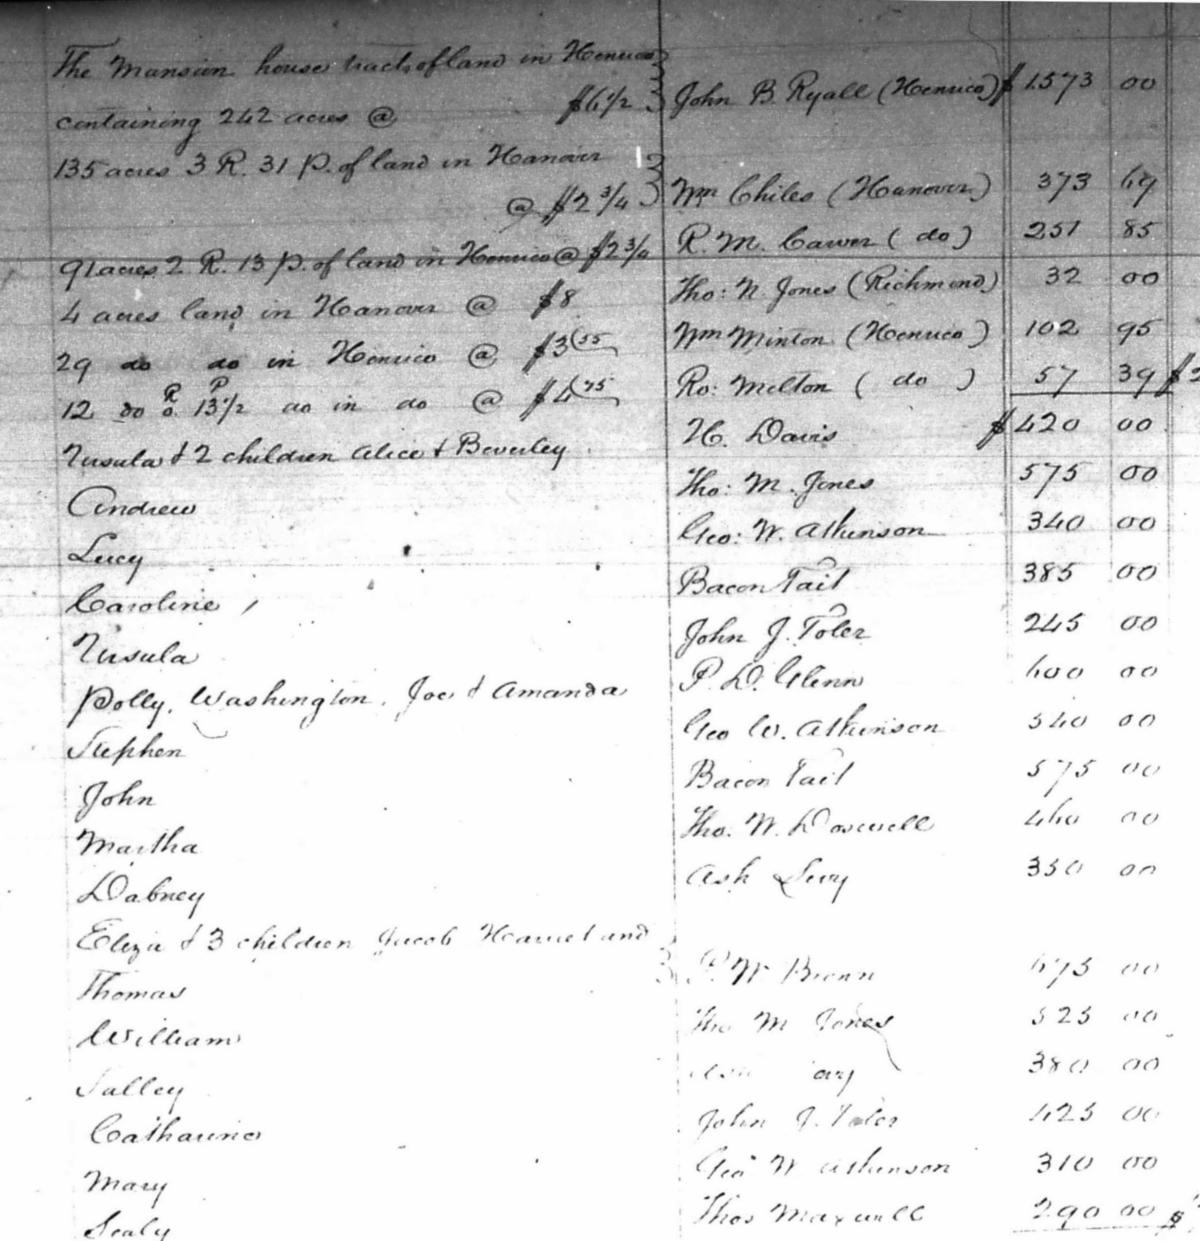 The Mansion house tract of land in Henrico
containing 242 acres @ $6 1/2 John B. Ryall (Henrico) $ 1573 00
135 acres 3 R. 31 P. of land in Hanover
@ $2 3/4 Wm Chiles (Hanover) 373 69
91 acres 2 R. 13 P. of land in Henrico @ $2 3/4 R. M. Carver (do) 251 85
4 acres land in Hanover @ $8 Tho: N. Jones (Richmond) 32 00
29 do do in Henrico @ $3 55 Wm Minton (Henrico) 102 95
12 do 0 R 13 1/2 P do in do @ $4 75 Ro: Melton (do) 57 39 $2
Ursula & 2 children Alice & Beverley H. Davis $ 420 00
Andrew Tho: M. Jones 575 00
Lucy Geo: W. Atkinson 340 00
Caroline Bacon Tait 385 00
Ursula John J. Toler 245 00
Polly, Washington, Joe & Amanda P. D. Glenn 600 00
Stephen Geo W. Atkinson 540 00
John Bacon Tait 575 00
Martha Tho. W. Doswell 460 00
Dabney Ash Levy 350 00
Eliza & 3 children Jacob Harriet and
Thomas W. 675 00
William Tho M Jones 525 00
Salley 380 00
Catharine John J. Toler 425 00
Mary Geo W Atkinson 310 00
Sealy Thos Maxwell 290 00 $